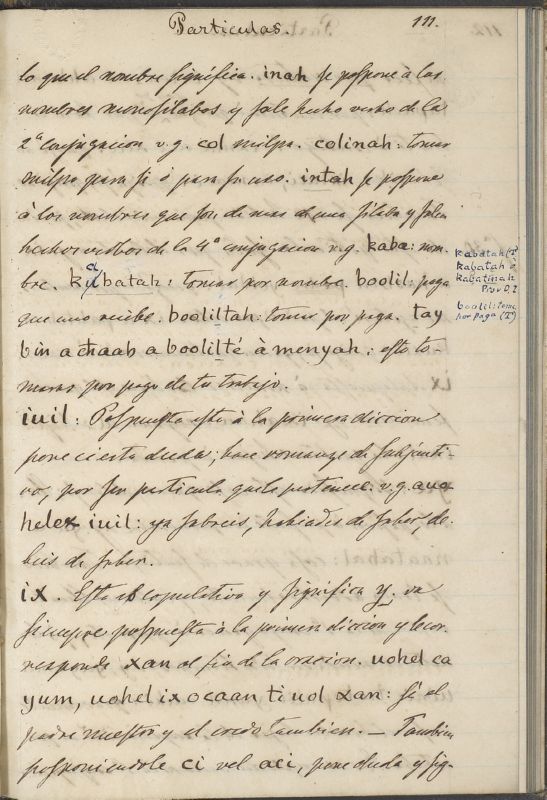 Particulas.
111.
lo que el nombre significa. inah se pospone à los
nombres monosilabos y sale hecho verbo de la
2ª conjugacion v.g. col milpa. colinah: tomar
milpa para si ó para su uso. intah se pospone
à los nombres que son de mas de una silaba y salen
hechos verbos de la 4ª conjugacion v.g. kaba: nom-
bre. kabatah: tomar por nombre. boolil: paga
que uno recibe. booliltah: tomar por paga. tay
bin a chaab a boolilté à menyah: esto to-
maras por pago de tu trabajo.
iuil: Pospuesta esta à la primera diccion
pone cierta duda; hace romance de subjunti-
vo, por ser particula que le pertenece. v.g. auo
helex iuil: ya sabreis, habiades de saber, de-
beis de saber.
ix. Esta es copulativa y significa y. va
siempre pospuesta à la primera diccion y le cor-
responde xan al fin de la oracion. uohel ca
yum, uohel ix ocaan ti uol xan: sé el
padre nuestro y el credo tambien. — Tambien
posponiendole ci vel aci, pone duda y sig-
kabatah (T)
kabatah
kabatinah
boolil: toma
por paga (T)